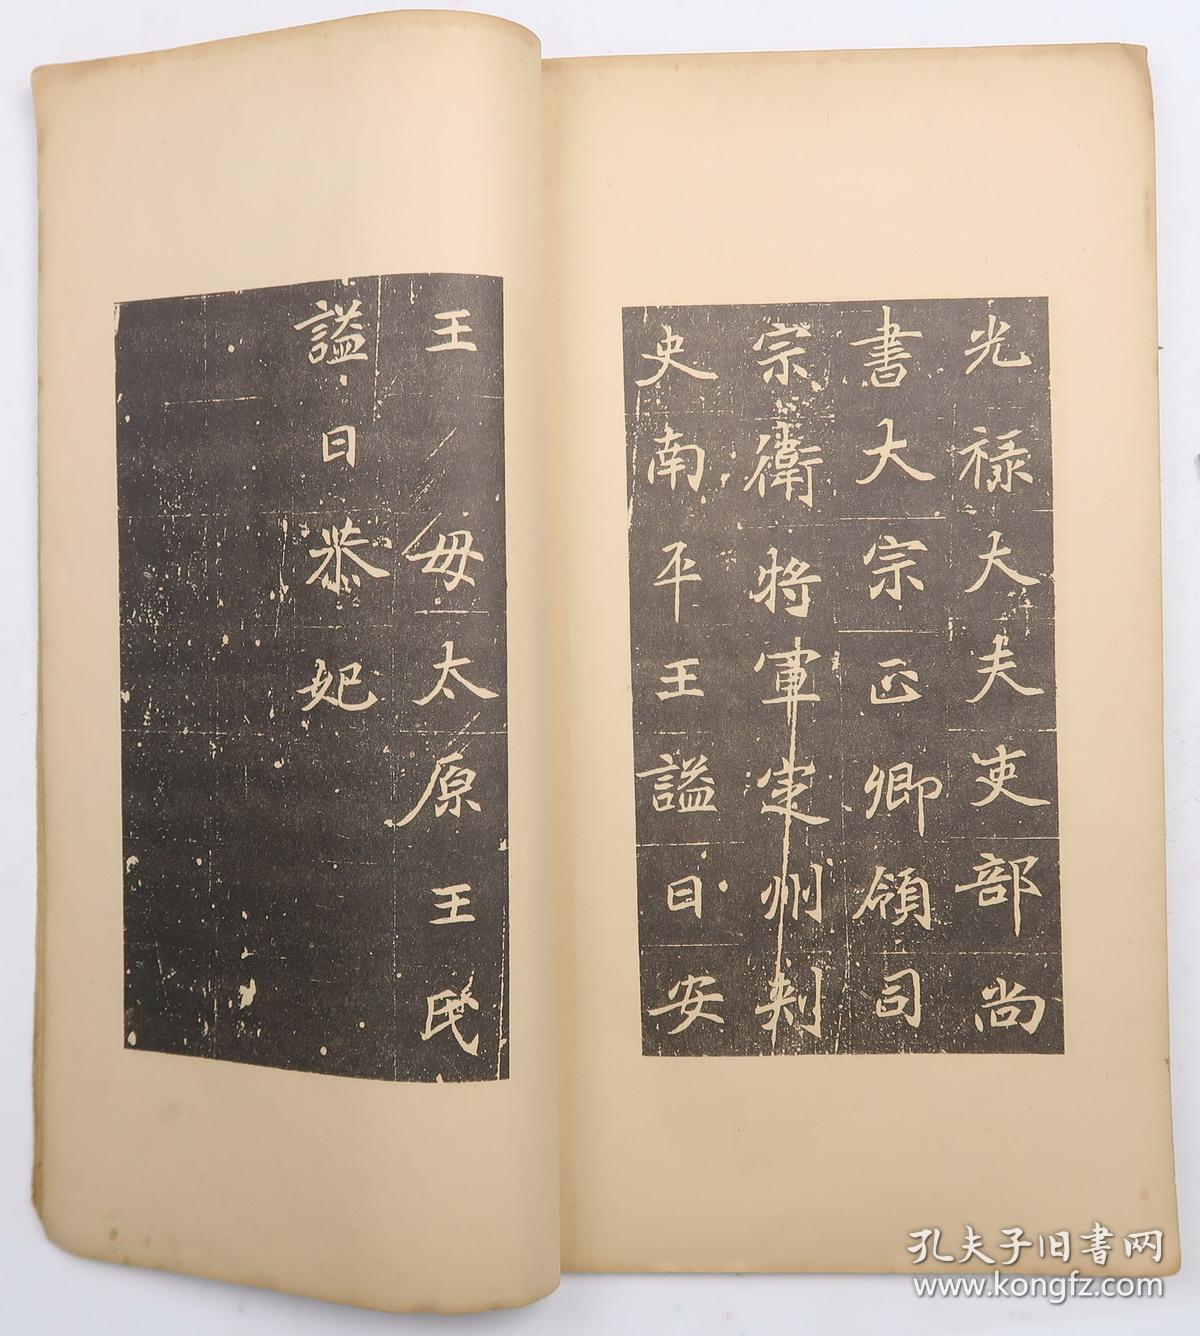 光禄大夫吏部尚
書大宗正卿領司
宗衛將軍定州刾
史南平王謚曰安
王母太原王氏
謚曰恭妃
孔夫子旧書网
www.kongfz.com